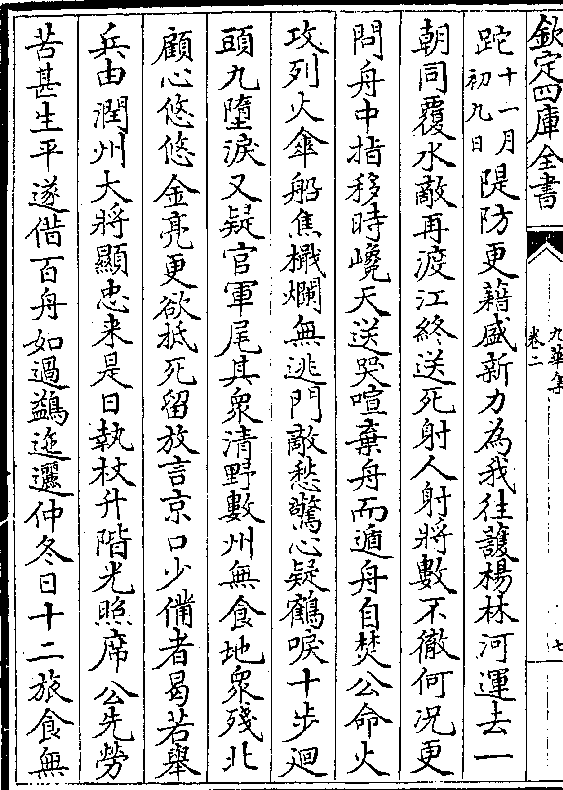 欽定四庫全書
九華集
卷二
七
跎十一月初九日隄防更藉盛新力為我往護楊林河運去一
朝同覆水敵再渡江終送死射人射將數不徹何况更
問舟中指移時巉天送哭喧棄舟而遁舟自焚公命火
攻列火傘船焦檝爛無逃門敵愁驚心疑鶴唳十步迴
頭九墮淚又疑官軍尾其衆清野數州無食地衆殘北
顧心悠悠金亮更欲抵死留放言京口少備者曷若舉
兵由潤州大將顯忠来是日執杖升階光照席公先勞
苦甚生平遂偕百舟如過鷁迤邐仲冬日十二旅食無